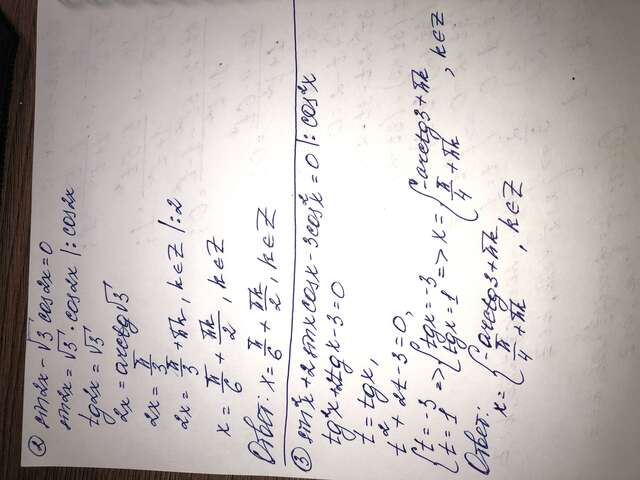 ② sin2x - √3 cos2x = 0
sin2x = √3 · cos2x |: cos2x
tg2x = √3
2x = arctg√3
2x = π/3
2x = π/3 + πk, k∈Z |: 2
x = π/6 + πk/2, k∈Z
Ответ: x = π/6 + πk/2, k∈Z
③ sin²x + 2sinxcosx - 3cos²x = 0 |: cos²x
tg²x + 2tgx - 3 = 0
t = tgx,
t² + 2t - 3 = 0,
{t = -3 t = 1 => {tgx = -3 tgx = 1 => x = {-arctg3 + πk π/4 + πk , k∈Z
Ответ:
x = {-arctg3 + πk π/4 + πk , k∈Z